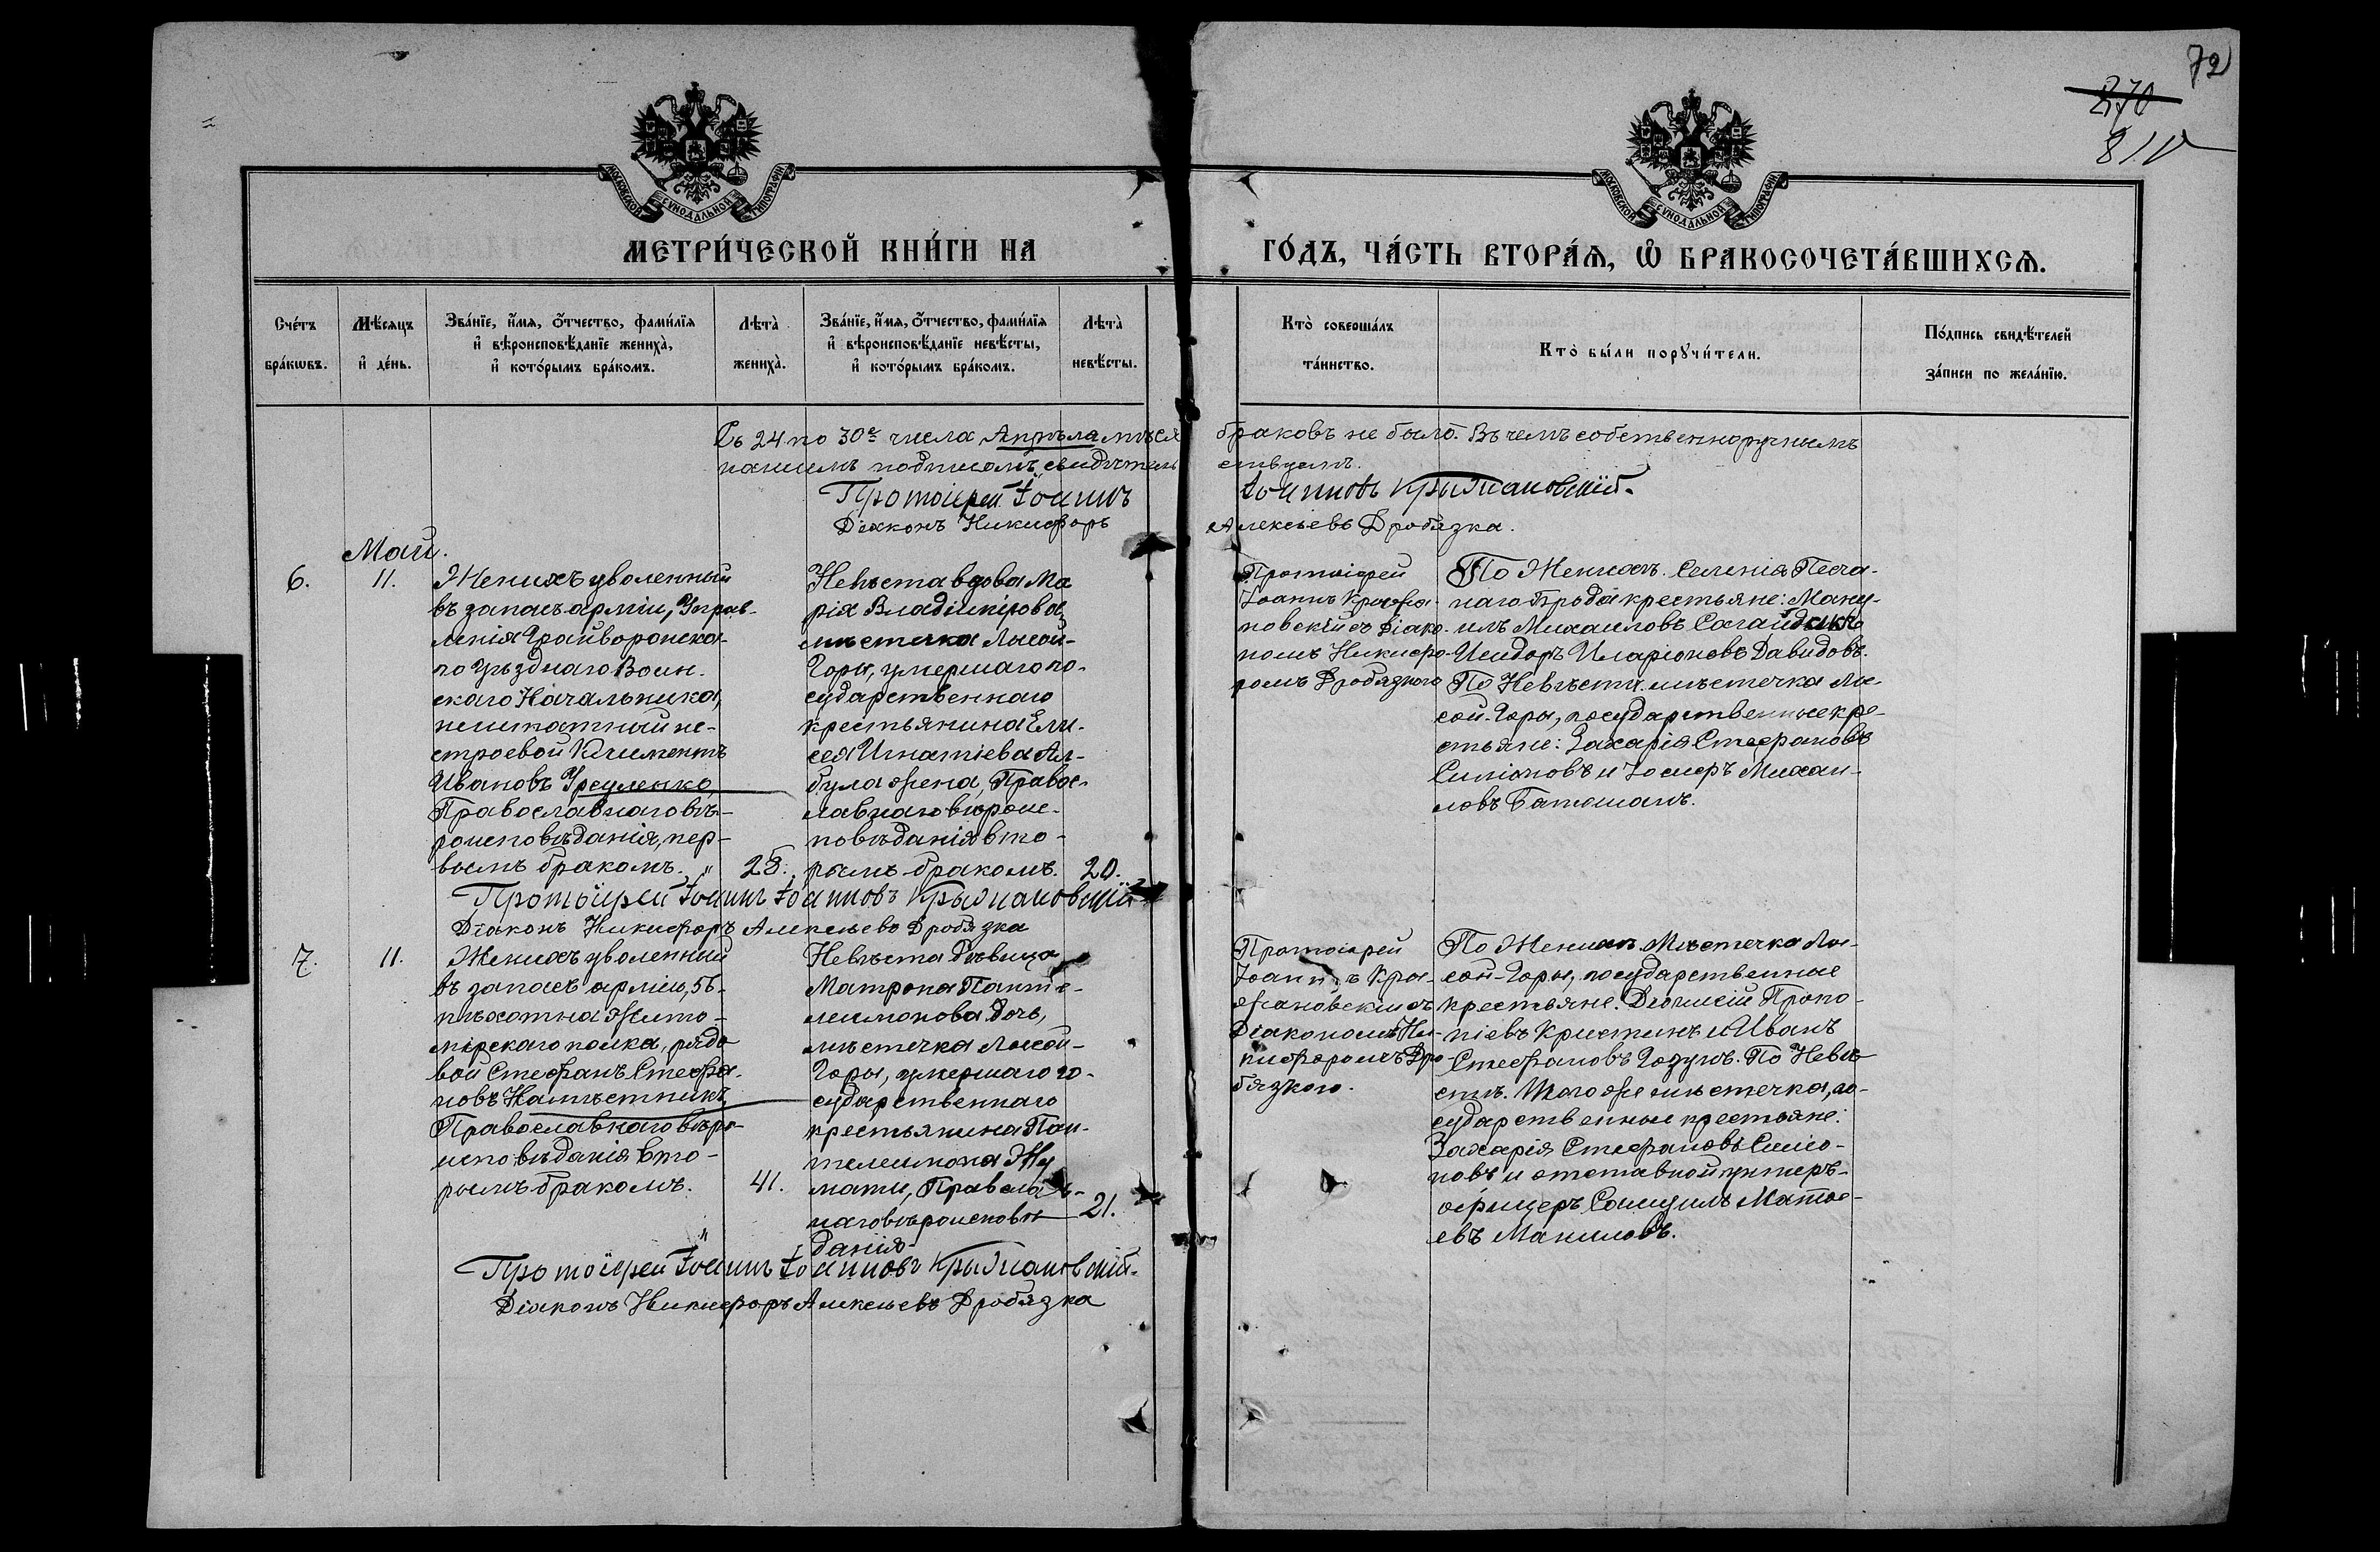 72
270
811
МОСКОВСКОЙ СѴНОДАЛЬНОЙ ТИПОГРАФІИ
МОСКОВСКОЙ СѴНОДАЛЬНОЙ ТИПОГРАФІИ
МЕТРИ́ЧЕСКОЙ КНИ́ГИ НА
ГО́ДЪ, ЧА́СТЬ ВТОРА́Ѧ, Ѽ БРАКОСОЧЕТА́ВШИХСѦ.
Сче́тъ
бра́кѡвъ.
Мѣ́сяцъ
и҆ де́нь.
Зва́нїе, и҆́мя, ѻ҆́тчество, фами́лїя
и҆ вѣроисповѣ́данїе жениха̀,
и҆ кото́рымъ бра́комъ.
Лѣта̀
жениха̀.
Зва́нїе, и҆́мя, ѻ҆́тчество, фами́лїя
и҆ вѣроисповѣ́данїе невѣ́сты,
и҆ кото́рымъ бра́комъ.
Лѣта̀
невѣ́сты.
Кто̀ соверша́лъ
та́инство.
Кто̀ бы́ли порꙋчи́тели.
По́дпись свидѣ́телей
за́писи по жела́нїю.
Съ 24 по 30е числа Апрѣля мѣся браковъ не было. Въ чемъ собственноручнымъ
нашимъ подписомъ свидѣтель ствуемъ.
Протоіерей Іоаннъ Іоанновъ Крыжановскій.
Діаконъ Никифоръ Алексѣевъ Дробязка.
Май.
6.
11.
Женихъ уволенный
въ запасъ арміи, Управ-
ленія Грайворонска-
го Уѣзднаго Воин-
скаго Начальника,
нештатный не-
строевой Климентъ
Ивановъ
Православнаго вѣ-
роисповѣданія, пер-
вымъ бракомъ.
28.
Невѣста вдова Ма
рія Владимірова,
мѣстечка Лысой-
Горы, умершаго го-
сударственнаго
крестьянина Ели-
сея Игнатіева Ал-
була жена, Правос-
лавнаго вѣроис-
повѣданія вто-
рымъ бракомъ.
20.
Протоіерей
Іоаннъ Крыжа-
новскій съ Діако-
номъ Никифо-
ромъ Дробязкою
По Женихѣ. Селенія Песча-
наго-Брода крестьяне: Ману-
илъ Михаиловъ
Исидоръ Иларіоновъ Давидовъ.
По Невѣстѣ. мѣстечка Лы-
сой-Горы, государственные кре-
стьяне: Захарія Стефановъ
Симіоновъ и Іосифъ Михаи-
ловъ Батошанъ.
Протоіерей Іоаннъ Іоанновъ Крыжановскій
Діаконъ Никифоръ Алексѣевъ Дробязка
7.
11.
Женихъ уволенный
въ запасъ арміи, 56-
пѣхотна Жито-
мірскаго полка, рядо
вой Стефанъ Стефа-
новъ Намѣстникъ,
Православнаго вѣро-
исповѣданія вто-
рымъ бракомъ.
41.
Невѣста дѣвица
Матрона Панте-
леимонова дочь,
мѣстечка Лысой-
Горы, умершаго го-
сударственнаго
крестьянина Пан-
телеимона Жу
мати, Правосла в-
наго вѣроисповѣ
данія
21.
Протоіерей
Іоаннъ Кры-
жановскій съ
Діакономъ Ни-
кифоромъ Дро-
бязкою.
По Женихѣ. Мѣстечка Лы-
сой-Горы, государственные
крестьяне: Діонисій Проко-
піевъ Кристинъ и Иванъ
Стефановъ Годунъ. По Невѣ-
стѣ. Того же мѣстечка, го-
сударственные крестьяне:
Захарія Стефановъ Симіо-
новъ и отставной унтеръ-
офицеръ Самуилъ Матѳе-
евъ Маниловъ.
Протоіерей Іоаннъ Іоанновъ Крыжановскій.
Діаконъ Никифоръ Алексѣевъ Дробязка